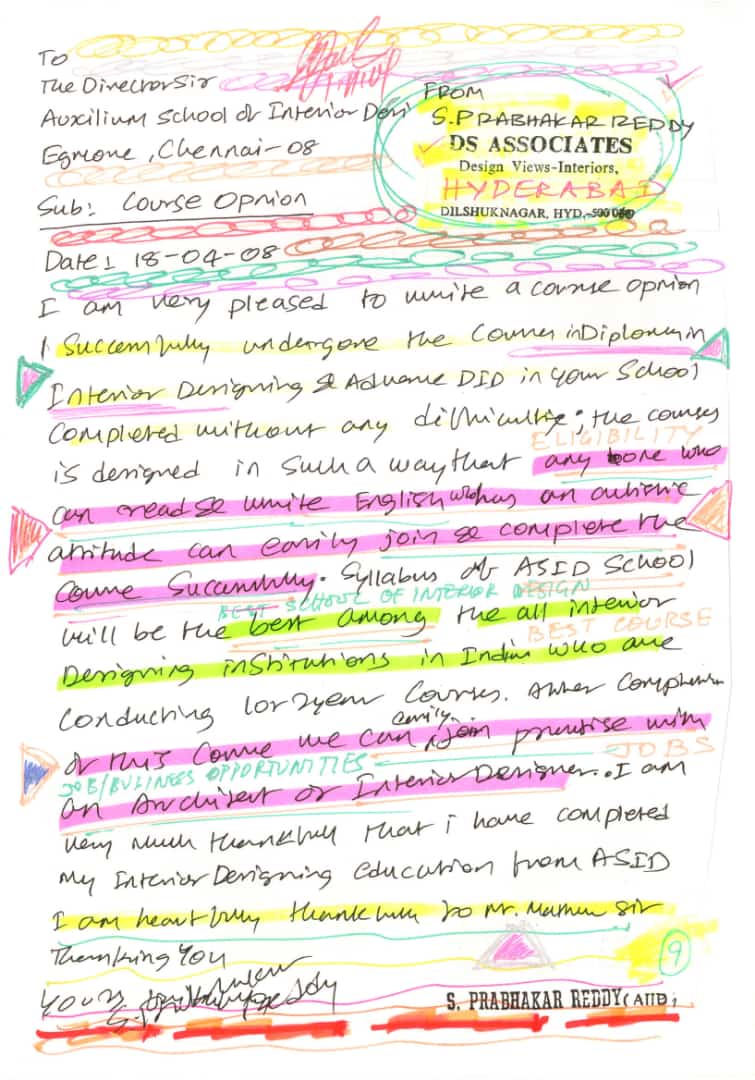 To
The Director Sir
Auxilium School of Interior Desi
Egmore, Chennai-08
FROM
S. PRABHAKAR REDDY
DS ASSOCIATES
Design Views-Interiors,
HYDERABAD
DILSHUKNAGAR, HYD,-500 060
Sub: Course Opnion
Date: 18-04-08
I am very pleased to write a course opnion
I Successfully undergone the Courses in Diploma in
Interior Designing & Advance DID in your School
Completed without any difficultie; the courses
ELIGIBILITY
is designed in Such a way that any one who
can read & write English whos an autistic
attitude can easily join & complete the
Course Successfully. Syllabus of ASID School
BEST SCHOOL OF INTERIOR DESIGN
will be the best among the all interior
BEST COURSE
Designing institutions in India who are
Conducting 1 or 2 year Courses. After Completion
of this Course we can easily join practise with
JOBS
JOB/BUSINESS OPPORTUNITIES
an Architect or Interior Designer.. I am
very much thankfull that i have completed
my Interior Designing education from ASID
I am heartfully thankfull to Mr. Mathew sir
Thanking You
Yours
9
S. PRABHAKAR REDDY (AIID)